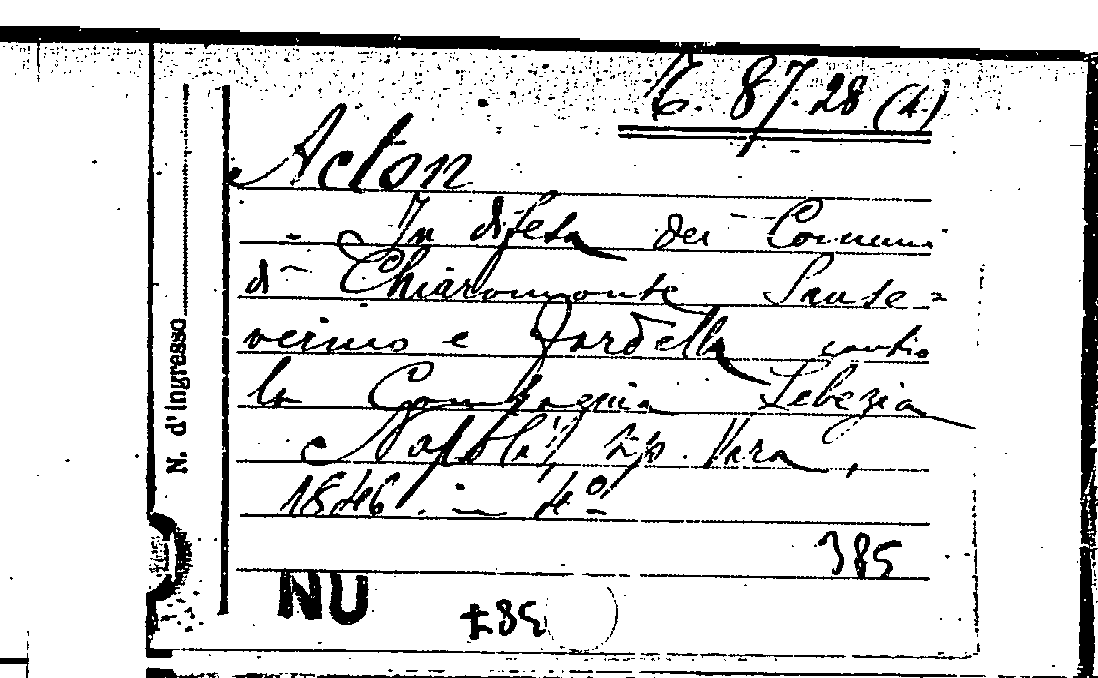 87.28 (4.)
Acton
- In difesa dei Comuni
di Chiaromonte Sanse=
verino e Fardella contro
la Compagnia Sebezia
Napoli, tip. Vara,
1846. in 4º
385
NU
N. d'ingresso